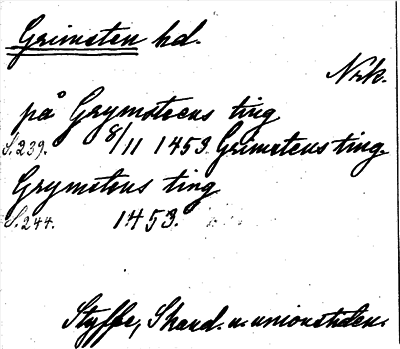 Grimsten hd.
Nrk.
på Grymsteens ting
S. 239. 8/11 1453. Grimstens ting
Grymstens ting
S. 244. 1453.
Styffe, Skand. u. unionstiden.